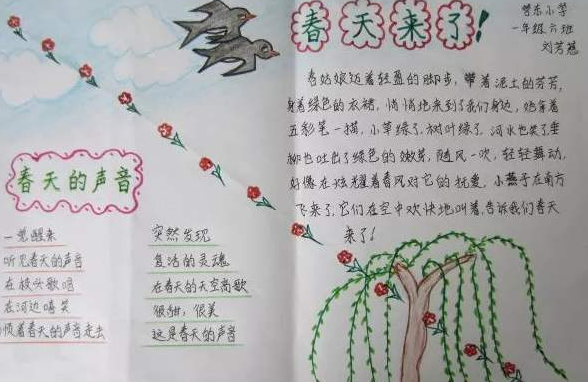 春天来了!
营东小学
一年级六班
刘芳慈
春姑娘迈着轻盈的脚步,带着泥土的芬芳,
身着绿色的衣裙,悄悄地来到了我们身边,她拿着
五彩笔一描,小草绿了,树叶绿了,河水也笑了垂
柳也吐出了绿色的嫩芽,随风一吹,轻轻舞动,
好像在炫耀着春风对它的抚爱,小燕子在南方
飞来了,它们在空中欢快地叫着,告诉我们春天
来了!
春天的声音
一觉醒来
听见春天的声音
在枝头歌唱
在河边嘻笑
顺着春天的声音走去
突然发现
复活的灵魂
在春天的天空高歌
很甜,很美
这是春天的声音